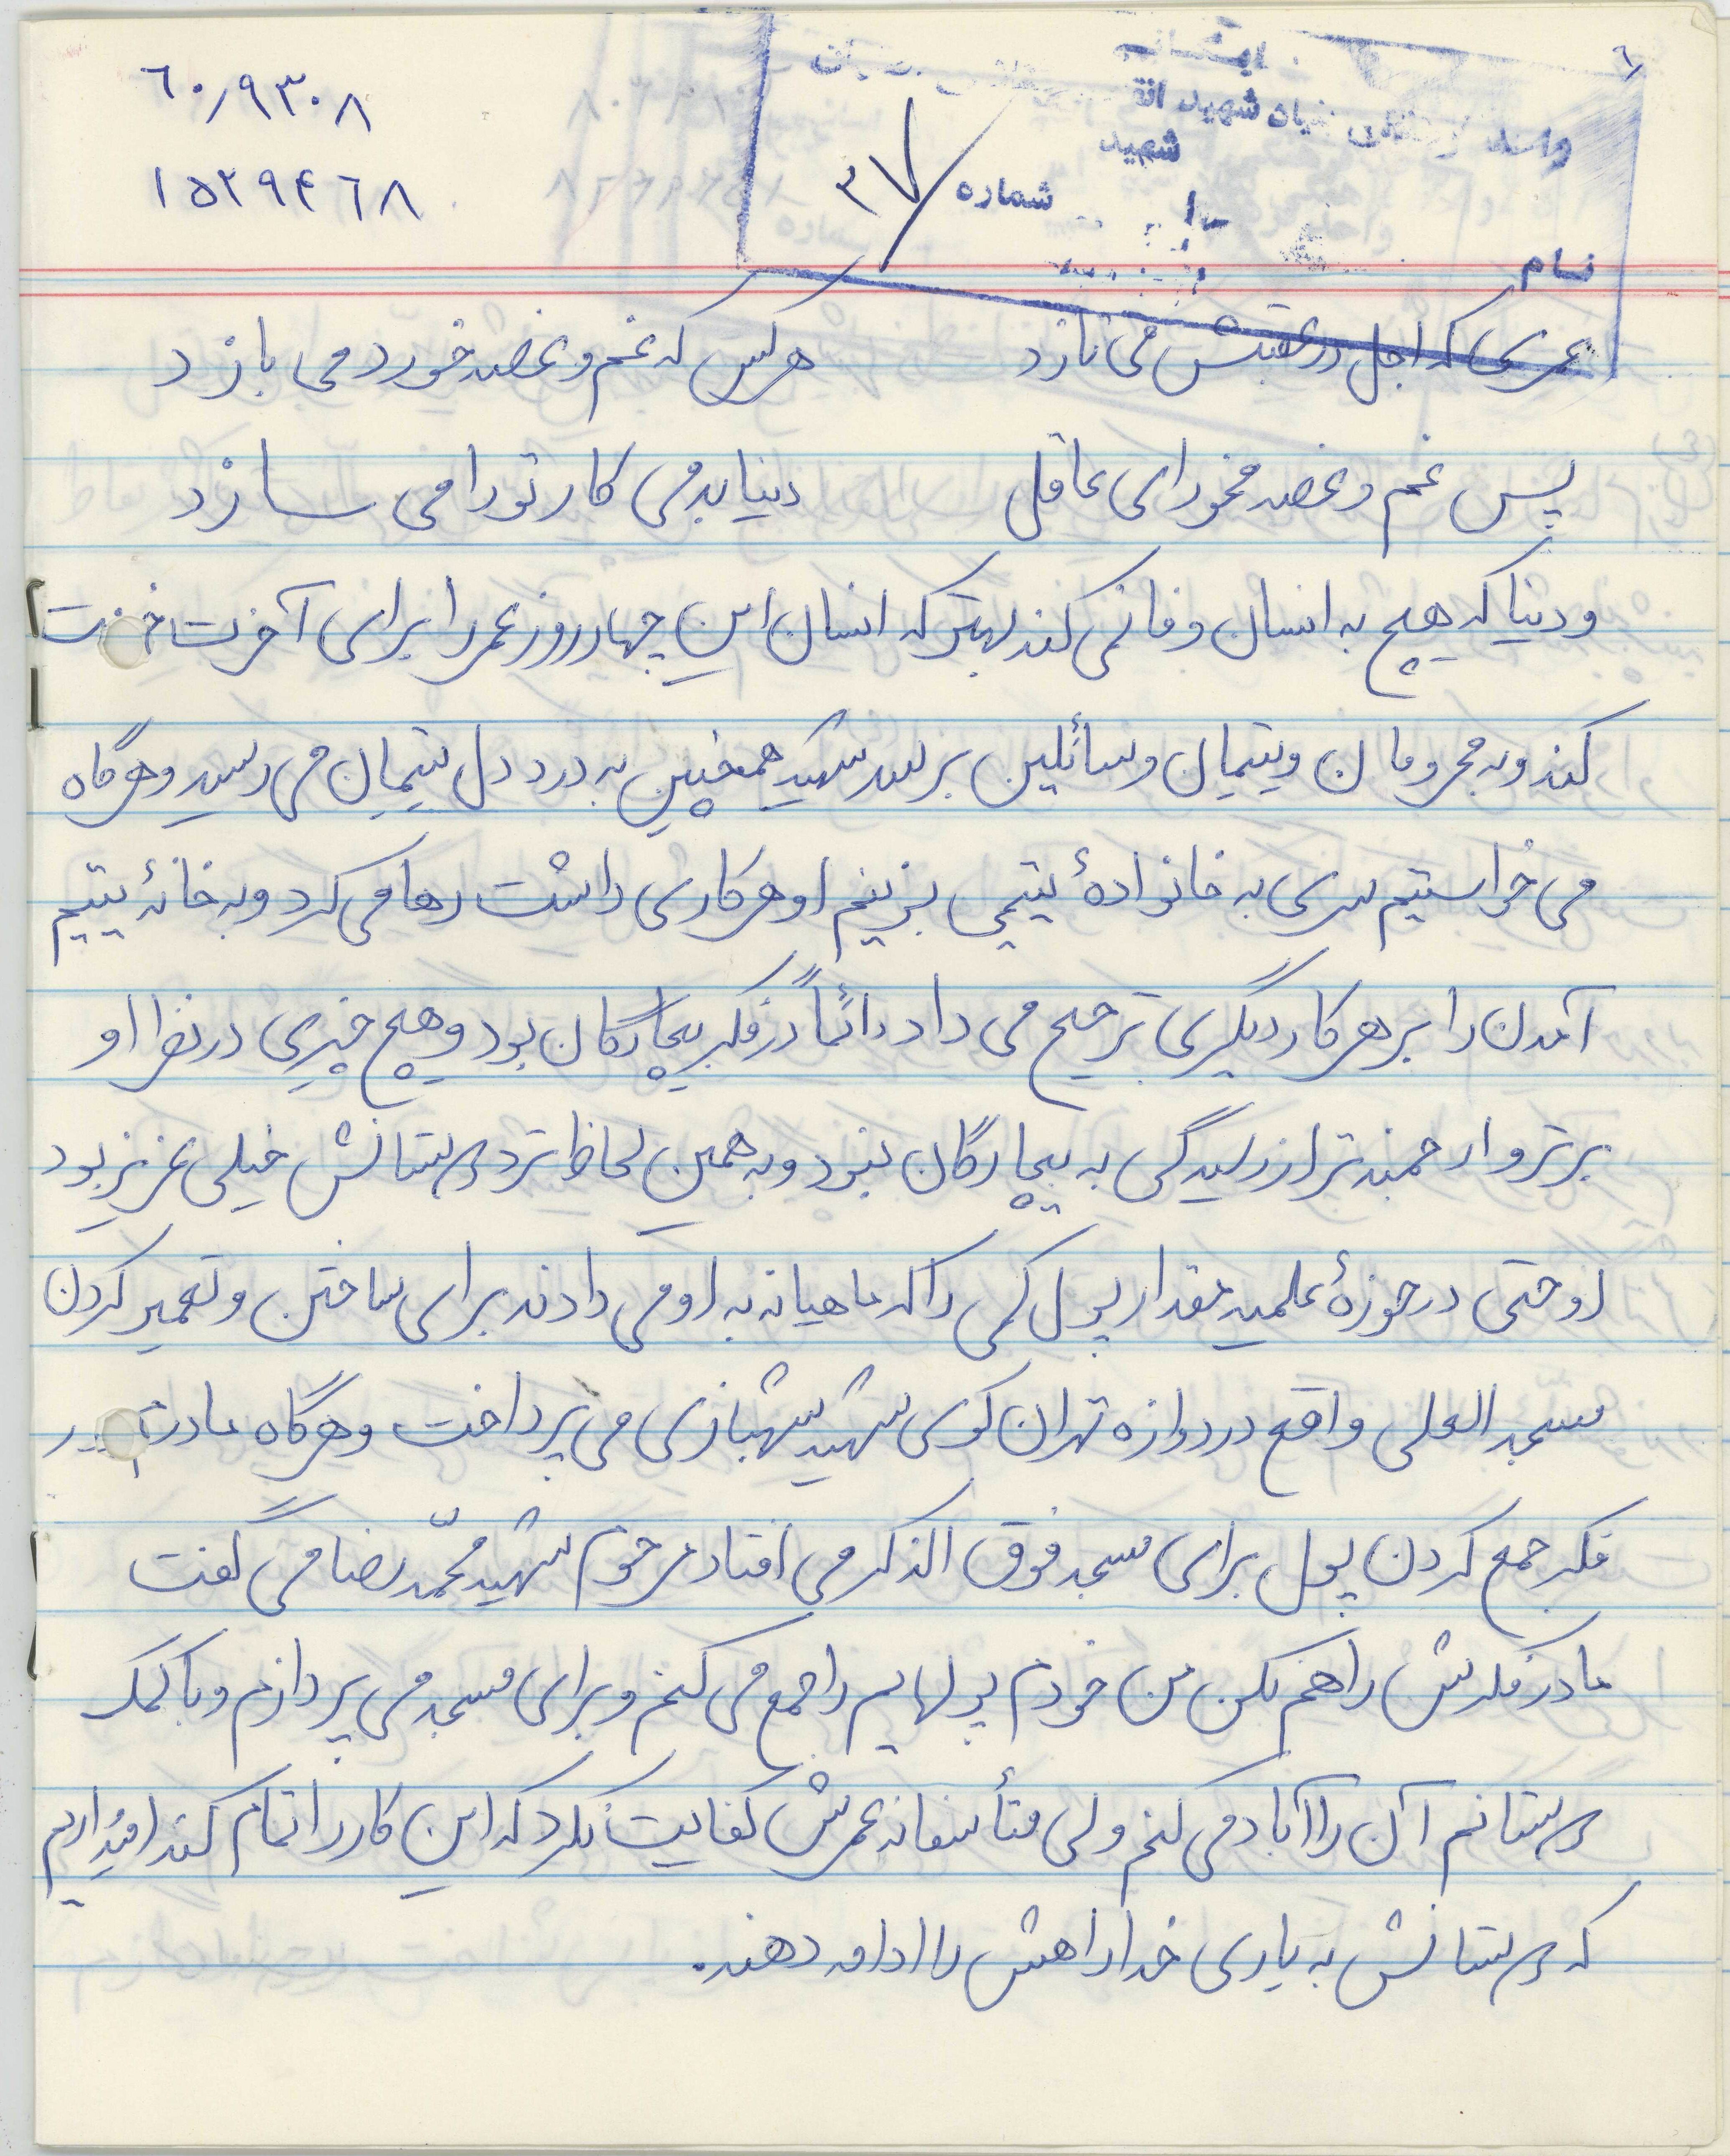 ٦
٦٠/٩٣٠٨
١٥٢٩٤٦٨
بنیاد شهید
شهید
شماره ٣٧
نام
عمری که اجل در عقبش می تازد هر کس که غم و غصه خورد می بازد
پس غم و غصه مخور ای عاقل دنیا بدمی کار تو را می سازد
و دنیا که هیچ به انسان وفا نمی کند بهتر که انسان این چهار روز عمر را برای آخرت
کند و به محرومان و یتیمان و سائلین برسد شهید همچنین به درد دل یتیمان می رسید و هرگاه
می خواستیم سری به خانوادهٔ یتیمی بزنیم او هر کاری داشت رها می کرد و به خانهٔ یتیم
آمدن را بر هر کار دیگری ترجیح می داد دائماً در فکر بیچارگان بود و هیچ چیزی در نظر او
برتر و ارجمندتر از رسیدگی به بیچارگان نبود و به همین لحاظ نزد دوستانش خیلی عزیز بود
او حتی در حوزهٔ علمیه مقدار پول کمی را که ماهیانه به او می دادند برای ساختن و تعمیر کردن
مسجد العلی واقع در دروازه تهران کوی شهید شهبازی می پرداخت و هرگاه مادرم در
فکر جمع کردن پول برای مسجد فوق الذکر می افتاد مرحوم شهید محمّدرضا می گفت
مادر فکرش را هم نکن من خودم پولهایم را جمع می کنم و برای مسجد می پردازم و با کمک
دوستانم آن را آباد می کنم ولی متأسفانه عمرش کفایت نکرد که این کار را تمام کند امیدواریم
که دوستانش به یاری خدا راهش را ادامه دهند.